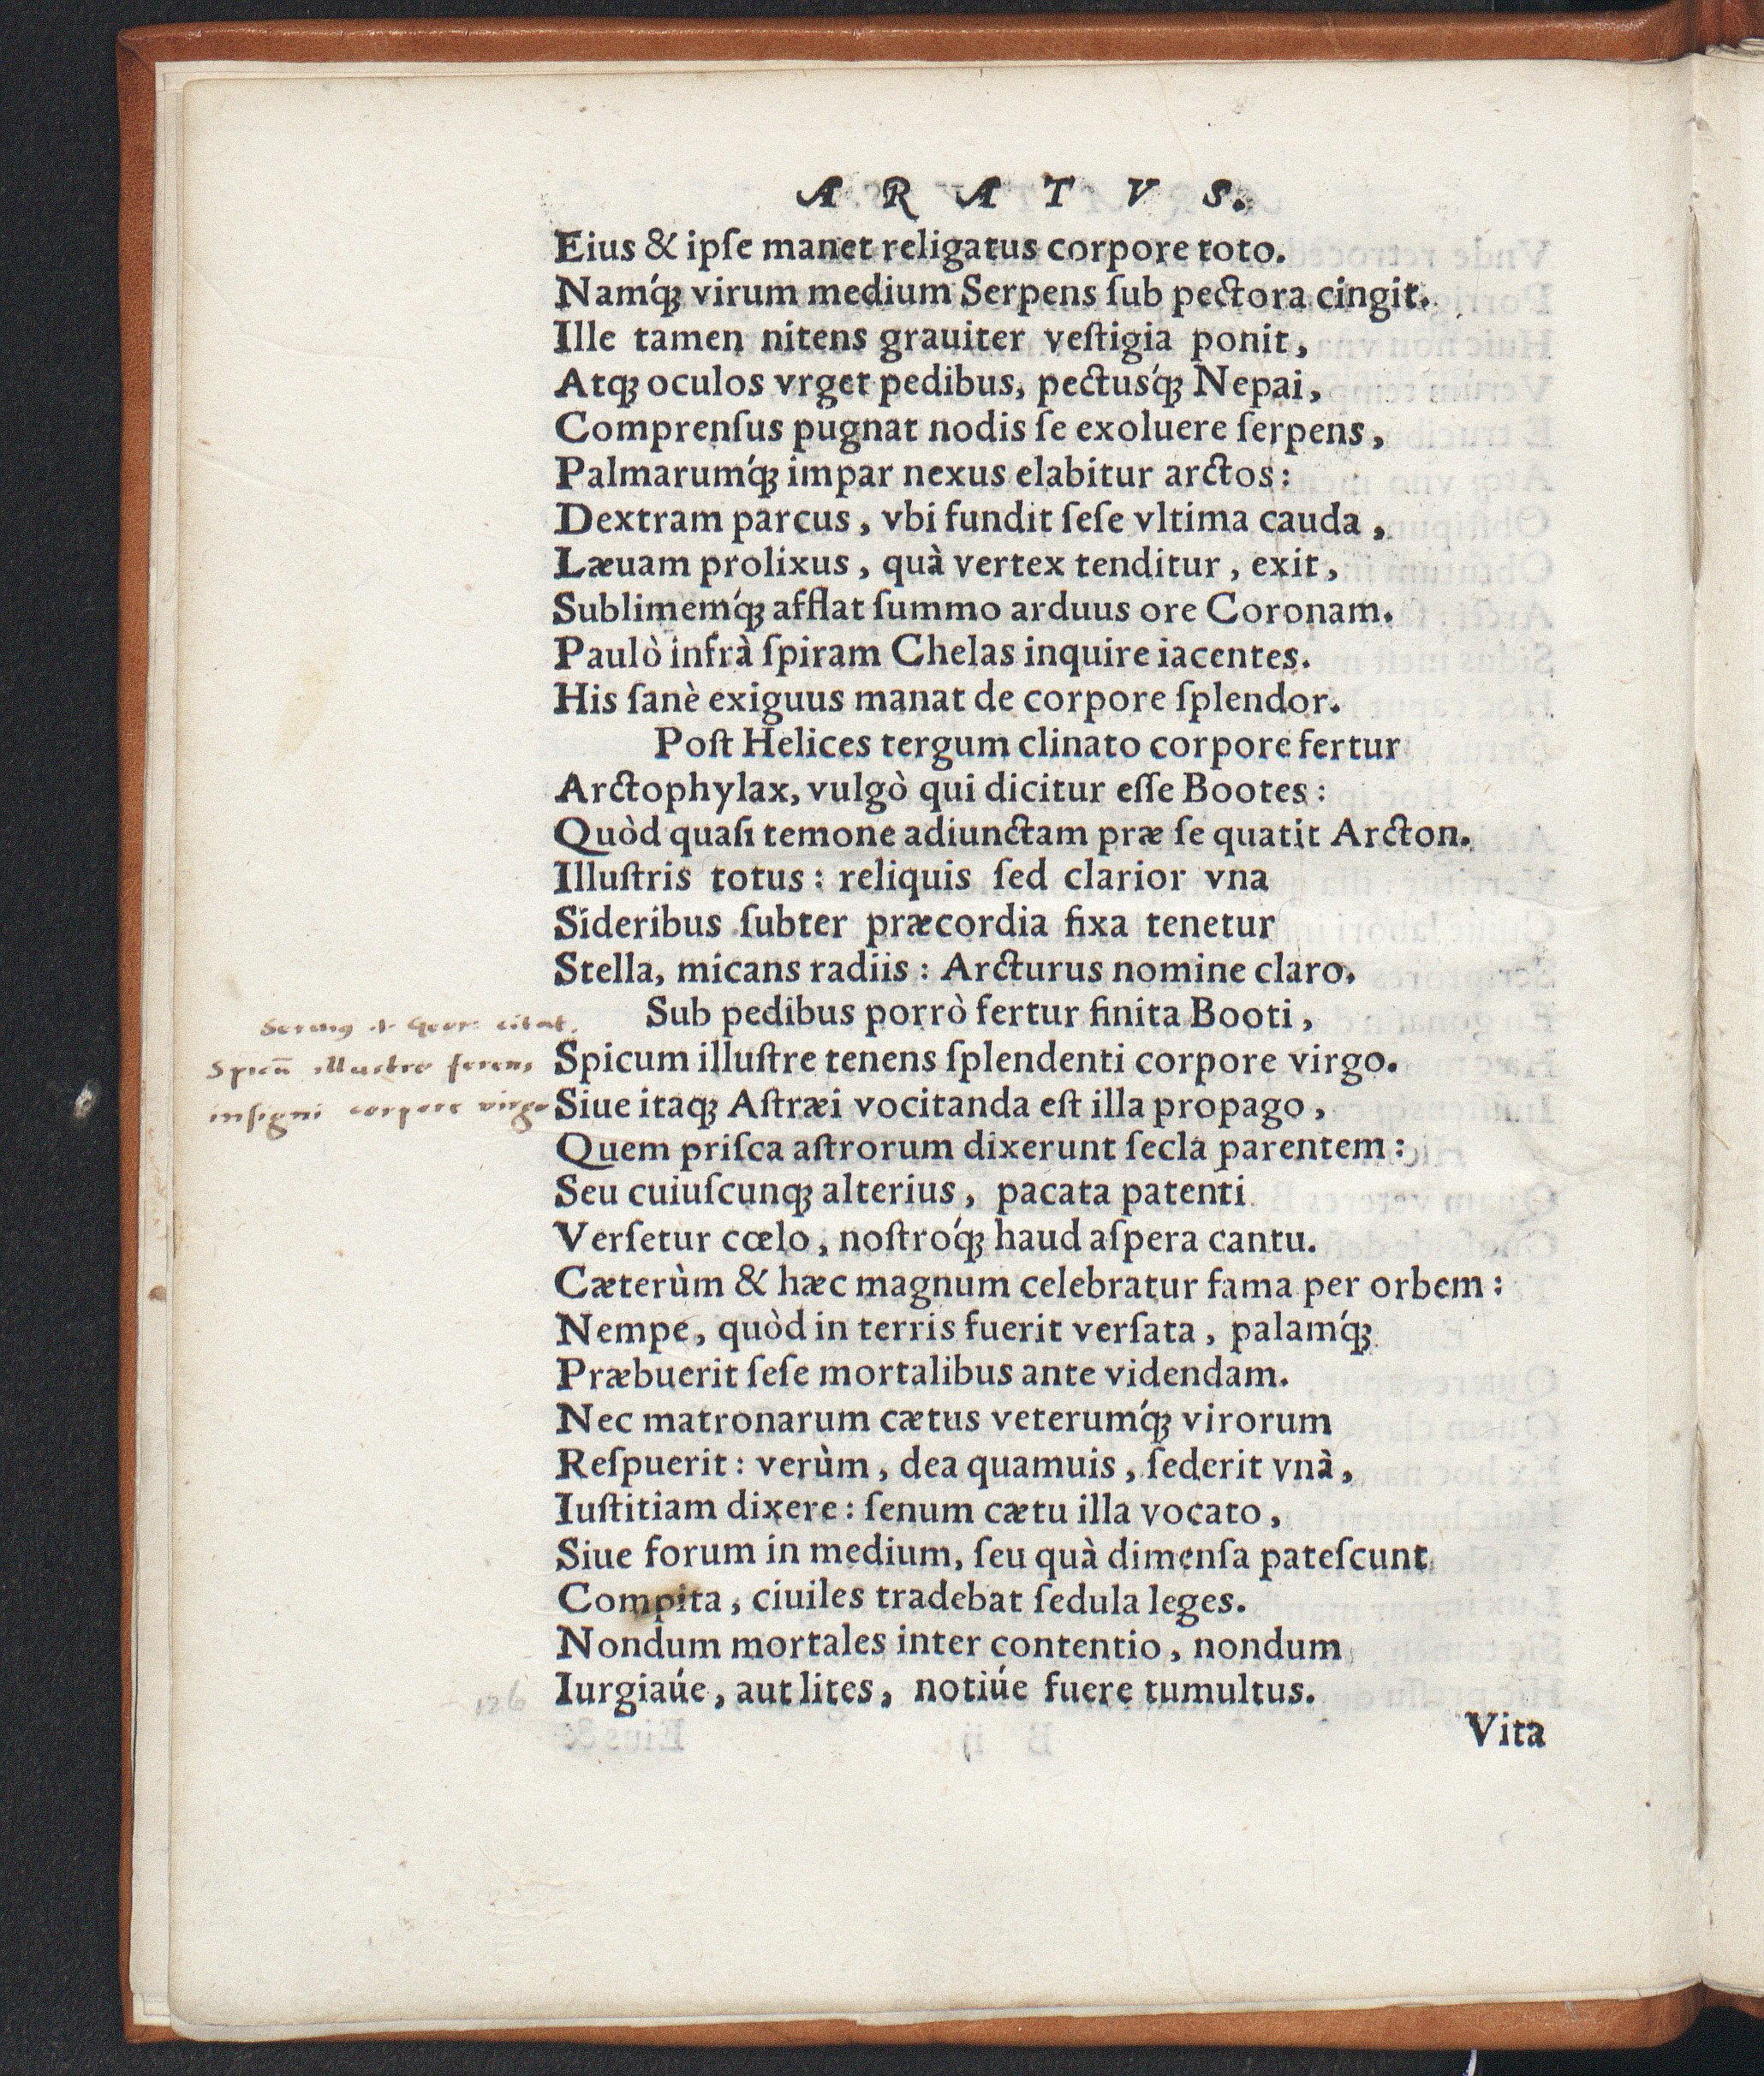 ARATVS.
Eius & ipſe manet religatus corpore toto.
Namq́ꝫ virum medium Serpens ſub pectora cingit.
Ille tamen nitens grauiter veſtigia ponit,
Atqꝫ oculos vrget pedibus, pectusq́ꝫ Nepai,
Comprenſus pugnat nodis ſe exoluere ſerpens,
Palmarumq́ꝫ impar nexus elabitur arctos:
Dextram parcus, vbi fundit ſeſe vltima cauda,
Læuam prolixus, quà vertex tenditur, exit,
Sublimemq́ꝫ afflat ſummo arduus ore Coronam.
Paulò infrà ſpiram Chelas inquire iacentes.
His ſanè exiguus manat de corpore ſplendor.
Poſt Helices tergum clinato corpore fertur
Arctophylax, vulgò qui dicitur eſſe Bootes:
Quòd quaſi temone adiunctam præ ſe quatit Arcton.
Illuſtris totus: reliquis ſed clarior vna
Sideribus ſubter præcordia fixa tenetur
Stella, micans radiis: Arcturus nomine claro.
Sub pedibus porrò fertur finita Booti,
Spicum illuſtre tenens ſplendenti corpore virgo.
Siue itaqꝫ Aſtræi vocitanda eſt illa propago,
Quem priſca aſtrorum dixerunt ſecla parentem:
Seu cuiuſcunqꝫ alterius, pacata patenti
Verſetur cœlo, noſtroq́ꝫ haud aſpera cantu.
Cæterùm & hæc magnum celebratur fama per orbem:
Nempe, quòd in terris fuerit verſata, palamq́ꝫ
Præbuerit ſeſe mortalibus ante videndam.
Nec matronarum cætus veterumq́ꝫ virorum
Reſpuerit: verùm, dea quamuis, ſederit vnà,
Iuſtitiam dixere: ſenum cætu illa vocato,
Siue forum in medium, ſeu quà dimenſa pateſcunt
Compita, ciuiles tradebat ſedula leges.
Nondum mortales inter contentio, nondum
Iurgiaúe, aut lites, notiúe fuere tumultus.
Vita
citat
Spicū illustre ferens
insigni corpore virgo
126